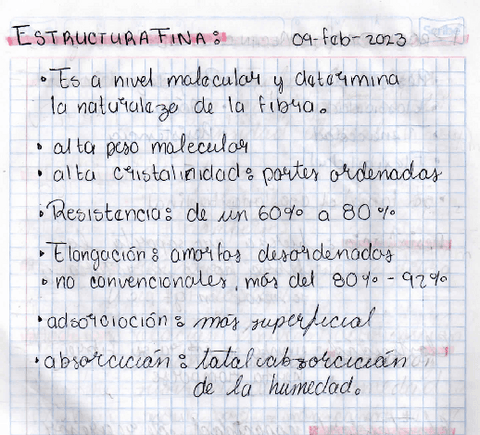 ESTRUCTURA FINA: 09-Feb-2023
• Es a nivel molecular y determina
la naturaleza de la fibra.
• alta peso molecular
• alta cristalinidad: partes ordenadas
• Resistencia: de un 60% a 80%
• Elongación: amorfas desordenados
• no convencionales, más del 80% - 92%
• adsorcioción: más superficial
• absorcición: total absorcición
de la humedad.